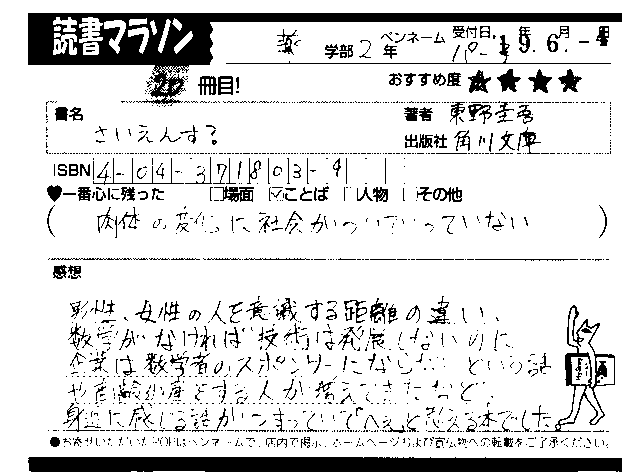 読書マラソン
薬 学部 2 年 ペンネーム パーラ 受付日. 19. 6. -4
20 冊目! おすすめ度 ★★★★
書名 さいえんす? 著者 東野圭吾
出版社 角川文庫
ISBN 4-04-371803-9
♥一番心に残った □場面 ☑ことば □人物 □その他
( 肉体の変化に社会がついていっていない )
感想
男性、女性の人を意識する距離の違い、
数学がなければ技術は発展しないのに
企業は数学者のスポンサーにならない という話
や高齢出産をする人が増えてきたなど、
身近に感じる話がつまっていて「へぇ」と思える本でした
●お寄せいただいたPOPはペンネームで、店内で掲示、ホームページおよび宣伝物への転載をご了承ください。